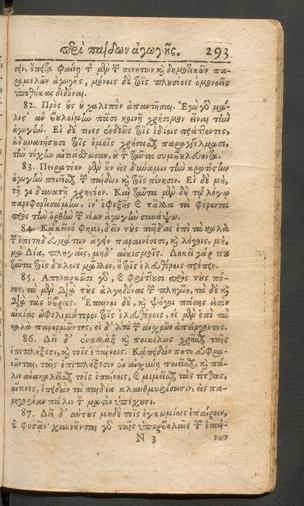 περὶ παίδων ἀγωγῆς. 293
ἔπειτα φαίνῃ τ̃ μὲν τ̃ πενήτων καὶ δημοτικῶν πα-
ραμελῶν ἀγωγῆς, μόνοις δὲ τοῖς πλουσίοις ὁμονοεῖς
ὑποθήκας διδόναι.
82. Πρὸς οὓς οὐ χαλεπὸν ἀπαντῆσαι. Ἐγὼ γὸ μά-
λιστ' ἂν βουλοίμην πᾶσι κοινῇ χρήσιμον εἶναι τὴν
ἀγωγήν. Εἰ δέ τινες ἐνδεῶς τοῖς ἰδίοις πράττοντες,
ἀδυνατήσουσι τοῖς ἐμοῖς χρῆσθαι παραγγέλμασι,
τὴν τύχην αἰτιάσθωσαν, οὐ τ̃ ταῦτα συμβουλεύοντα.
83. Πειρατέον μὲν οὖν εἰς δύναμιν τὴν κρατίστην
ἀγωγὴν ποιεῖσθαι τ̃ παίδων καὶ τοῖς πένησιν. Εἰ δὲ μὴ,
τῇ γε δυνατῇ χρηστέον. Καὶ ταῦτα μὲν δὴ τῷ λόγῳ
παρεφορτισάμην, ἵν' ἐφεξῆς καὶ τἄλλα τὰ φέροντα
πρὸς τὴν ὀρθὴν τ̃ νέων ἀγωγὴν συνάψω.
84. Κἀκεῖνό φημι, δεῖν τοὺς παῖδας ἐπὶ τὰ καλὰ
τ̃ ἐπιτηδευμάτων ἄγειν παραινέσεσι, καὶ λόγοις, μὴ,
μὰ Δία, πληγαῖς, μηδ' αἰκισμοῖς. Δοκεῖ γάρ που
ταῦτα τοῖς δούλοις μᾶλλον, ἢ τοῖς ἐλευθέροις πρέπειν.
85. Ἀποναρκῶσι γὸ, καὶ φρίττουσι πρὸς τοὺς πό-
νους, τὰ μὲν διὰ τὰς ἀλγηδόνας τ̃ πληγῶν, τὰ δὲ καὶ
διὰ τὰς ὕβρεις. Ἔπαινοι δὲ, καὶ ψόγοι πάσης εἰσὶν
αἰκίας ὠφελιμώτεροι τοῖς ἐλευθέροις, οἱ μὲν ἐπὶ τὰ
καλὰ παρορμῶντες, οἱ δ' ἀπὸ τ̃ αἰσχρῶν ἀπείργοντες.
86. Δεῖ δ' ἐναλλὰξ καὶ ποικίλως χρῆσθαι ταῖς
ἐπιπλήξεσι, καὶ τοῖς ἐπαίνοις. Κἀπειδάν ποτε θρασύ-
νωνται, ταῖς ἐπιπλήξεσιν ἐν αἰσχύνῃ ποιεῖσθαι, καὶ πά-
λιν ἀνακαλεῖσθαι τοῖς ἐπαίνοις, καὶ μιμεῖσθαι τὰς τίτθας,
αἵτινες, ἐπειδὰν τὰ παιδία κλαυθμυρίσωσιν, εἰς πα-
ρηγορίαν πάλιν τ̃ μαστὸν ὑπέχουσι.
87. Δεῖ δ' αὐτοὺς μηδὲ τοῖς ἐγκωμίοις ἐπαίρειν,
καὶ φυσᾷν· χαυνοῦνται γὸ ταῖς ὑπερβολαῖς τ̃ ἐπαί-
N 3 νων